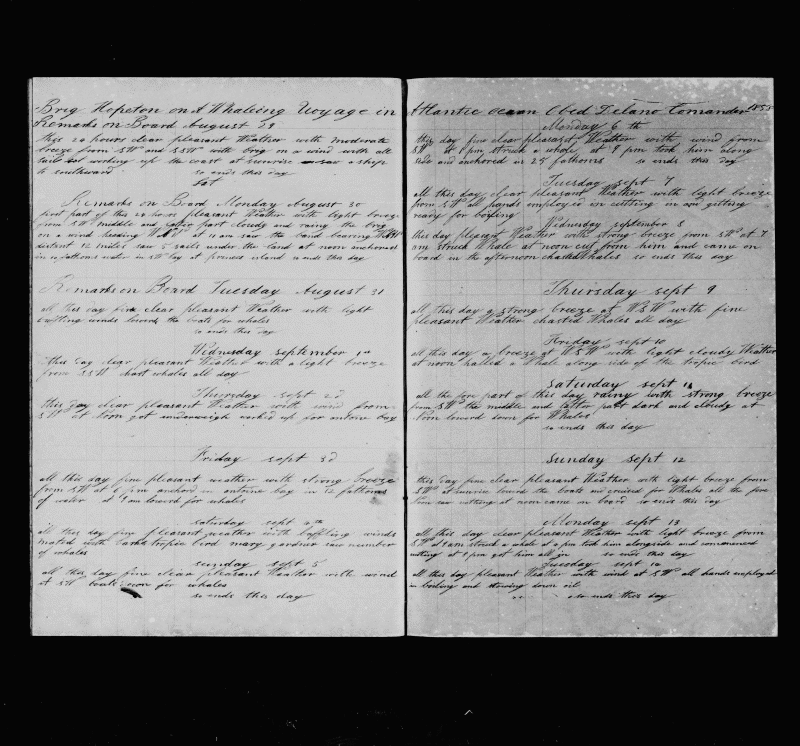 Brig Hopeton on A Whaleing Voyage in
Remarks on Board August 29
this 24 hours clear pleasant Weather with moderate
breeze from SW and SSW with brig on a wind with all
sail set working up the coast at sunrise saw a ship
to southward so ends this day
Remarks on Board Monday August 30
first part of this 24 hours pleasant Weather with light breeze
from SW middle and latter part cloudy and rainy the brig
on a wind heading at 10 am saw the land bearing
distent 12 miles saw 5 sails under the land at noon anchored
in fathoms water in SW bay at princes island so ends this day
Remarks on Board Tuesday August 31
all this day fine clear pleasant Weather with light
baffling winds lowerd the boats for whales
so ends this day
Wednesday september 1st
this day clear pleasant Weather with a light breeze
from SSW chast whales all day
Thursday sept 2d
this day clear pleasant Weather with wind from
SW at noon got underweigh worked up for antone bay
Friday sept 3d
all this day fine pleasant weather with strong breeze
from SW at pm anchord in antone bay in 12 fathoms
of water at 9 am lowerd for whales
saturday sept 4th
all this day fine pleasant weather with baffling winds
mated with bark tropic bird mary gardner saw number
of whales
sunday sept 5
all this day fine clear pleasant Weather with wind
at SW boats down for whales
so ends this day
Atlantic ocean Obed Delano Comander 1858
Monday 6th
this day fine clear pleasant Weather with wind from
SW at 1 pm struck a whale at 8 pm took him along
side and anchored in 25 fathoms so ends this day
Tuesday sept 7
all this day clear pleasant Weather with light breeze
from SW all hands employed in cutting in and getting
ready for boiling
Wednesday september 8
this day pleasant Weather with strong breeze from SW at 7
am struck Whale at noon cut from him and came on
board in the afternoon chasted Whales so ends this day
Thursday sept 9
all this day a strong breeze at WSW with fine
pleasant Weather chasted Whales all day
Friday sept 10
all this day a breeze at WSW with light cloudy Weather
at noon halled a Whale along side of the tropic bird
Saturday sept 11
all the fore part of this day rainy with strong breeze
from SW the middle and latter part dark and cloudy at
noon lowerd down for Whales
so ends this day
Sunday sept 12
this day fine clear pleasant Weather with light breeze from
SW at sunrise lowerd the boats and cruised for Whales all the fore
noon saw nothing at noon came on board so ends this day
Monday sept 13
all this day clear pleasant Weather with light breeze from
SW 9 am struck a whale at 2 pm took him alongside and commenced
cutting at 8 pm got him all in so ends this day
Tuesday sept 14
all this day pleasant Weather with wind at SW all hands employed
in boiling and stowing down oil
so ends this day